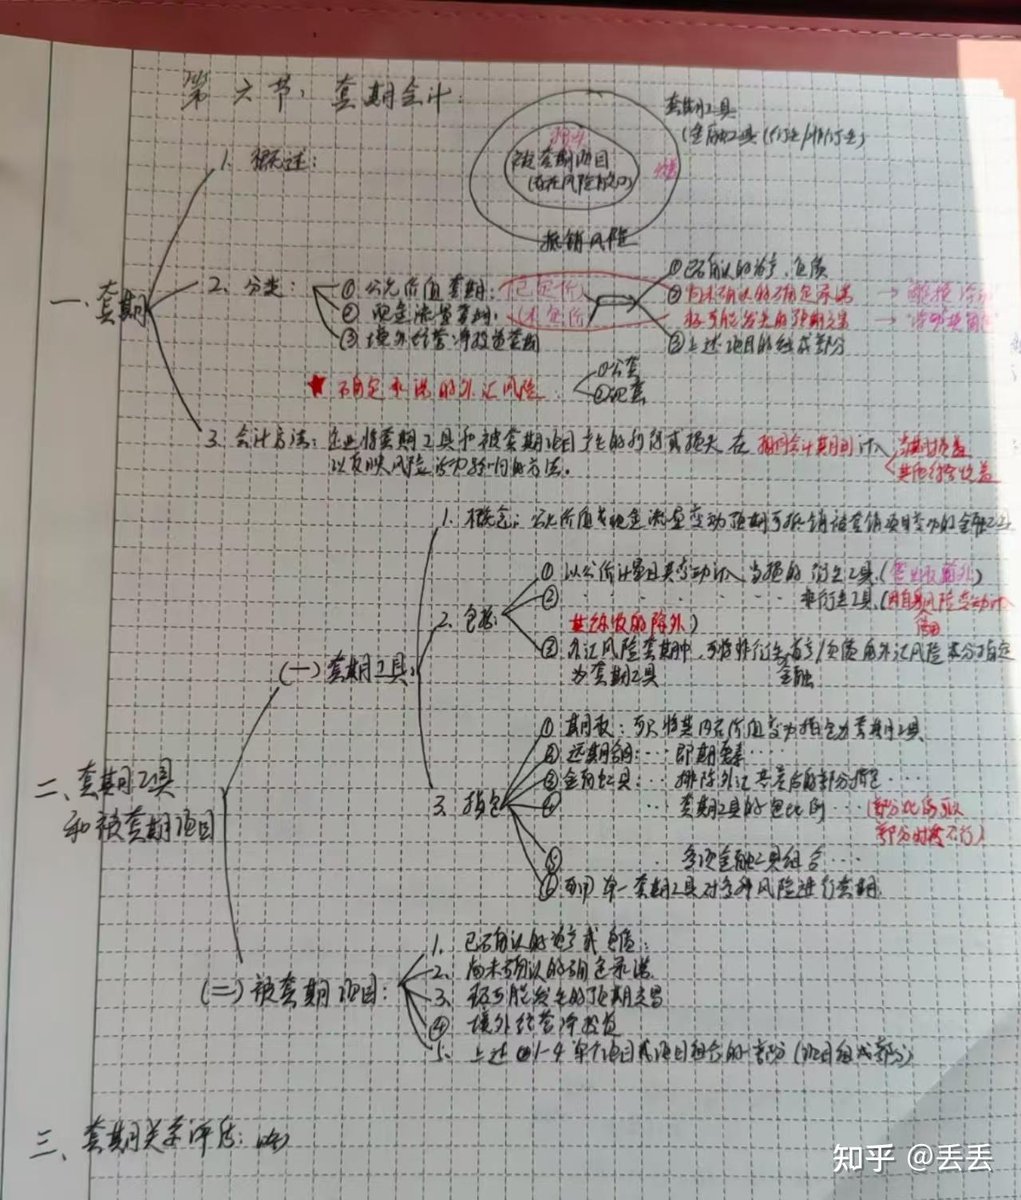 第六节：套期会计：
套期工具
(金融工具(衍生/非衍生)
被套期项目
(存在风险敞口)
抵销风险
1. 概述：
一、套期
2. 分类：
① 公允价值套期：(已定价)
② 现金流量套期：(未定价)
③ 境外经营净投资套期
①已确认的资产、负债
②尚未确认的确定承诺
极可能发生的预期交易
③上述项目的组成部分
★ 确定承诺的外汇风险
①公套
②现套
3. 会计方法：企业将套期工具和被套期项目产生的利得或损失在相同会计期间计入
当期损益
其他综合收益
以反映风险管理影响的方法。
1. 概念：公允价值或现金流量变动预期可抵销被套期项目变动的金融工具
2. 包括：
① 以公价计量且其变动计入当损的衍生工具(签出期权除外)
② 非衍生工具(因自身风险变动计入
其综收的除外)
信用
③ 外汇风险套期中，可将非衍生金融资产/负债的外汇风险成分指定
为套期工具
(一) 套期工具：
3. 指定
① 期权：可只将其内在价值变动指定为套期工具
② 远期合同：… 即期要素…
③ 金融工具：… 排除外汇基差后的部分指定…
④ 套期工具的一定比例 (部分比例可以
部分时间不行)
⑤ 多项金融工具组合…
⑥ 可用单一套期工具对多种风险进行套期
二、套期工具
和被套期项目
(二) 被套期项目：
1. 已确认的资产或负债；
2. 尚未确认的确定承诺
3. 极可能发生的预期交易
④ 境外经营净投资
5. 上述1-4单个项目或项目组合的一部分(项目组成部分)
三、套期关系评估：(略)
知乎 @丢丢